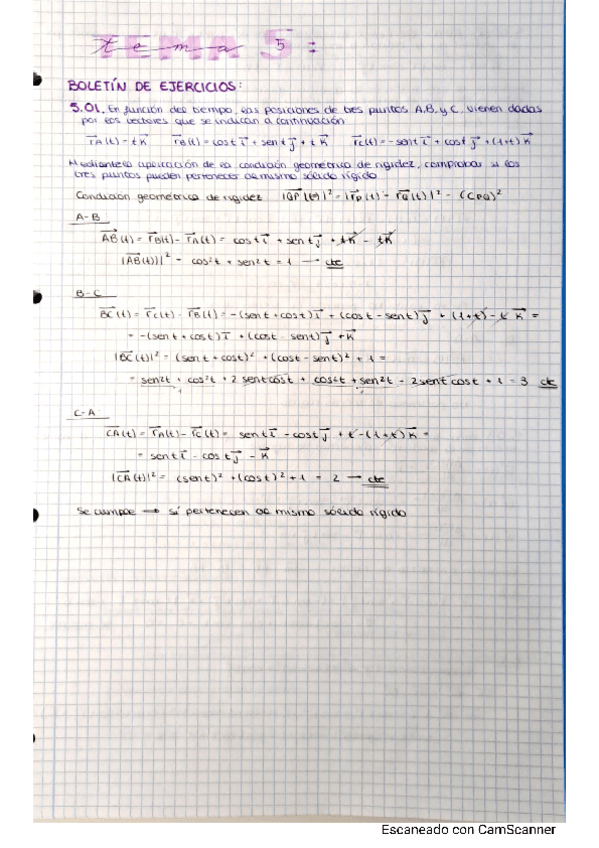 tema 5:
BOLETÍN DE EJERCICIOS:
5.01. En función del tiempo, las posiciones de tres puntos A, B, y C, vienen dadas
por los vectores que se indican a continuación
r⃗A(t) = t k⃗    r⃗B(t) = cos t i⃗ + sen t j⃗ + t k⃗    r⃗C(t) = -sen t i⃗ + cos t j⃗ + (1+t) k⃗
Mediante la aplicación de la condición geométrica de rigidez, comprobar si los
tres puntos pueden pertenecer al mismo sólido rígido
Condición geométrica de rigidez |QP⃗(t)|² = |r⃗P(t) - r⃗Q(t)|² = (CPQ)²
A-B
AB⃗(t) = r⃗B(t) - r⃗A(t) = cos t i⃗ + sen t j⃗ + t k⃗ - t k⃗
|AB⃗(t)|² = cos²t + sen²t = 1 → cte
B-C
BC⃗(t) = r⃗C(t) - r⃗B(t) = -(sen t + cos t) i⃗ + (cos t - sen t) j⃗ + (1+t) - t k⃗ =
= -(sen t + cos t) i⃗ + (cos t - sen t) j⃗ + k⃗
|BC⃗(t)|² = (sen t + cos t)² + (cos t - sen t)² + 1 =
= sen²t + cos²t + 2 sen t cos t + cos²t + sen²t - 2 sen t cos t + 1 = 3 cte
C-A
CA⃗(t) = r⃗A(t) - r⃗C(t) = sen t i⃗ - cos t j⃗ + t - (1+t) k⃗ =
= sen t i⃗ - cos t j⃗ - k⃗
|CA⃗(t)|² = (sen t)² + (cos t)² + 1 = 2 → cte
Se cumple → sí pertenecen al mismo sólido rígido
Escaneado con CamScanner